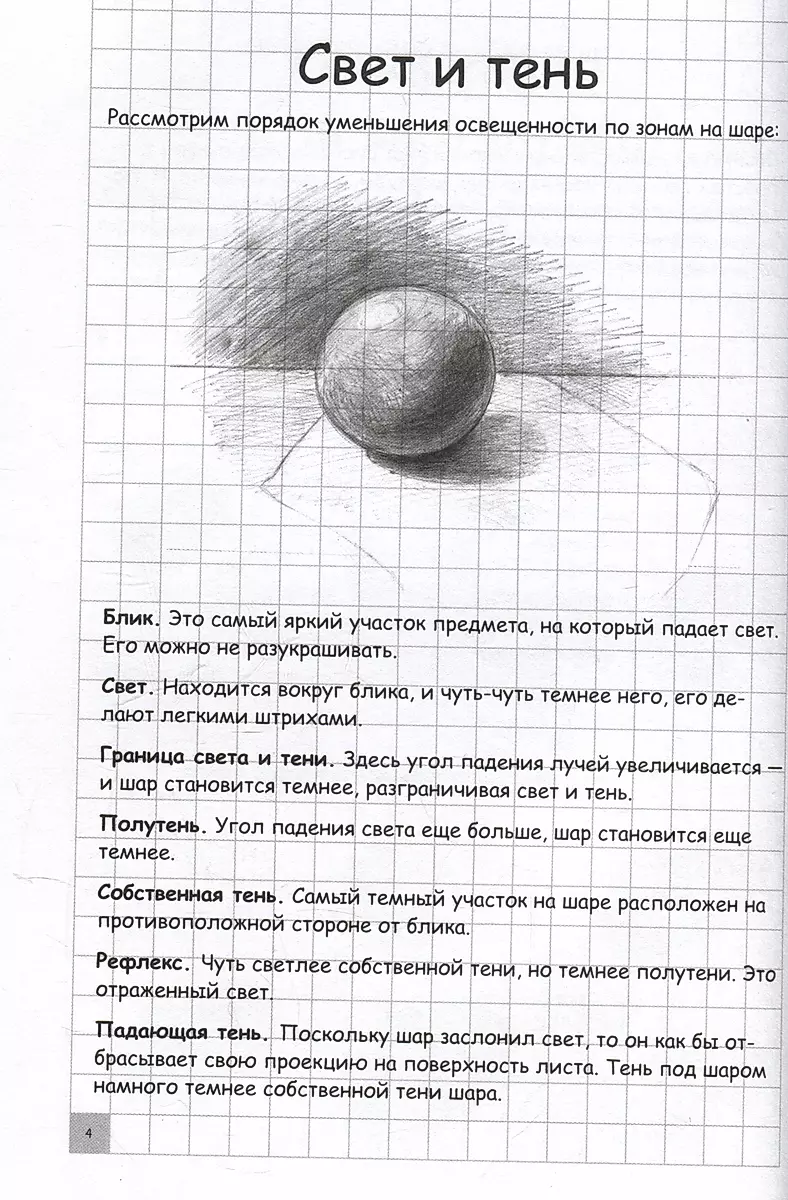 Свет и тень
Рассмотрим порядок уменьшения освещенности по зонам на шаре:
Блик. Это самый яркий участок предмета, на который падает свет.
Его можно не разукрашивать.
Свет. Находится вокруг блика, и чуть-чуть темнее него, его де-
лают легкими штрихами.
Граница света и тени. Здесь угол падения лучей увеличивается —
и шар становится темнее, разграничивая свет и тень.
Полутень. Угол падения света еще больше, шар становится еще
темнее.
Собственная тень. Самый темный участок на шаре расположен на
противоположной стороне от блика.
Рефлекс. Чуть светлее собственной тени, но темнее полутени. Это
отраженный свет.
Падающая тень. Поскольку шар заслонил свет, то он как бы от-
брасывает свою проекцию на поверхность листа. Тень под шаром
намного темнее собственной тени шара.
4